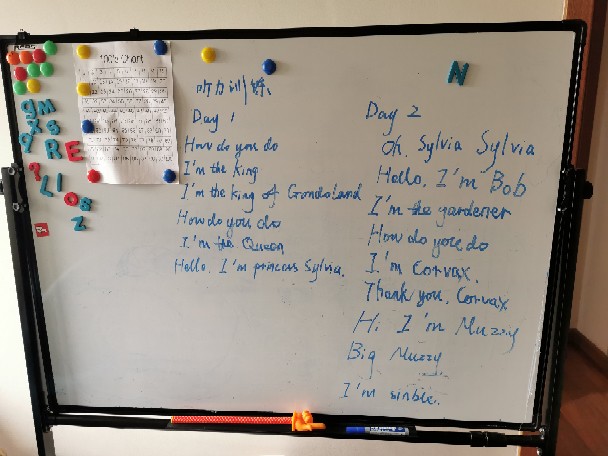 100's Chart
听力训练
Day 1
How do you do
I'm the king
I'm the king of Gondoland
How do you do
I'm the Queen
Hello, I'm princess Sylvia.
Day 2
Oh, Sylvia Sylvia
Hello, I'm Bob
I'm the gardener
How do you do
I'm Corvax.
Thank you, Corvax
Hi I'm Muzzy
Big Muzzy
I'm sinble.
N
g m
X s
R E
L i
o s
z